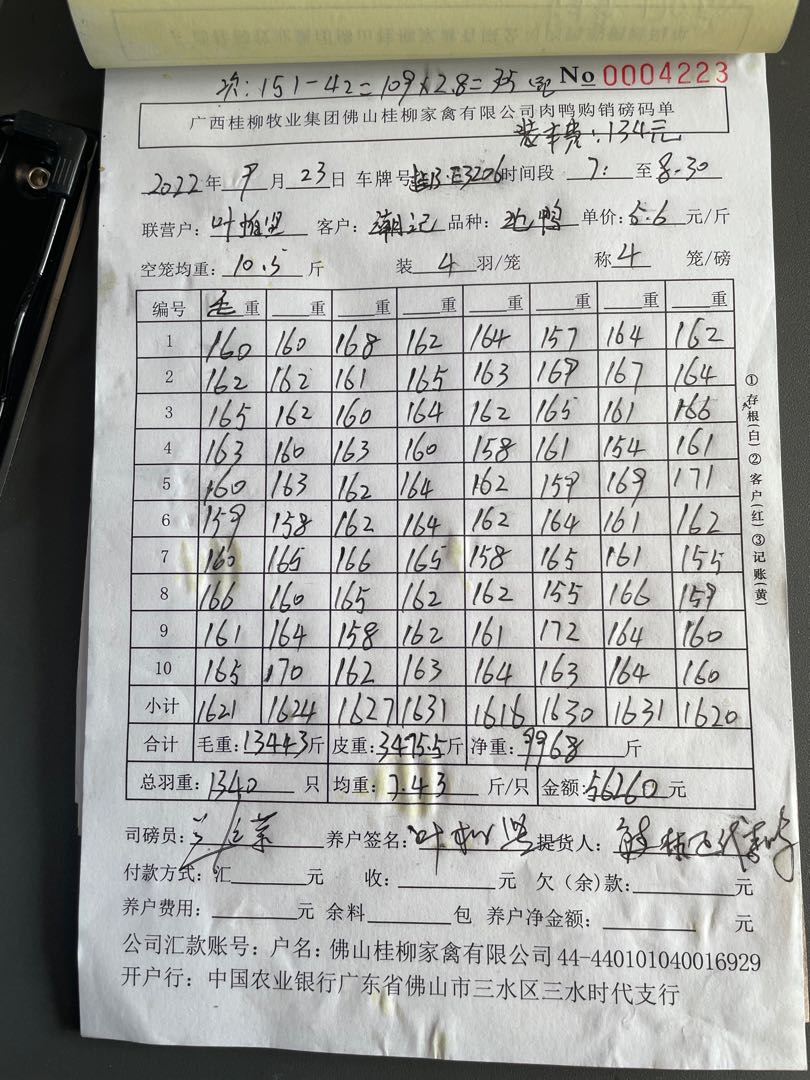 次:151-42=109×2.8=305元 No 0004223
广西桂柳牧业集团佛山桂柳家禽有限公司肉鸭购销磅码单
装车费:134元
2022年 9月 23日 车牌号 E3206 时间段 7: 至 8.30
联营户:叶柳坚 客户:潮记 品种: 鸭 单价:5.6 元/斤
空笼均重:10.5 斤 装 4 羽/笼 称 4 笼/磅
编号 毛重 重 重 重 重 重 重 重
1 160 160 168 162 164 157 164 162
2 162 162 161 165 163 169 167 164
3 165 162 160 164 162 165 161 166
4 163 160 163 160 158 161 154 161
5 160 163 162 164 162 159 169 171
6 159 158 162 164 162 164 161 162
7 160 165 166 165 158 165 161 155
8 166 160 165 162 162 155 166 159
9 161 164 158 162 161 172 164 160
10 165 170 162 163 164 163 164 160
小计 1621 1624 1627 1631 1616 1630 1631 1620
合计 毛重:13443斤 皮重:3475.5斤 净重:9968 斤
总羽重:1340 只 均重:7.43 斤/只 金额:56260 元
司磅员: 养户签名:叶柳坚 提货人:
付款方式:汇 元 收: 元 欠(余)款: 元
养户费用: 元 余料 包 养户净金额: 元
公司汇款账号:户名:佛山桂柳家禽有限公司 44-440101040016929
开户行:中国农业银行广东省佛山市三水区三水时代支行
①存根(白)②客户(红)③记账(黄)